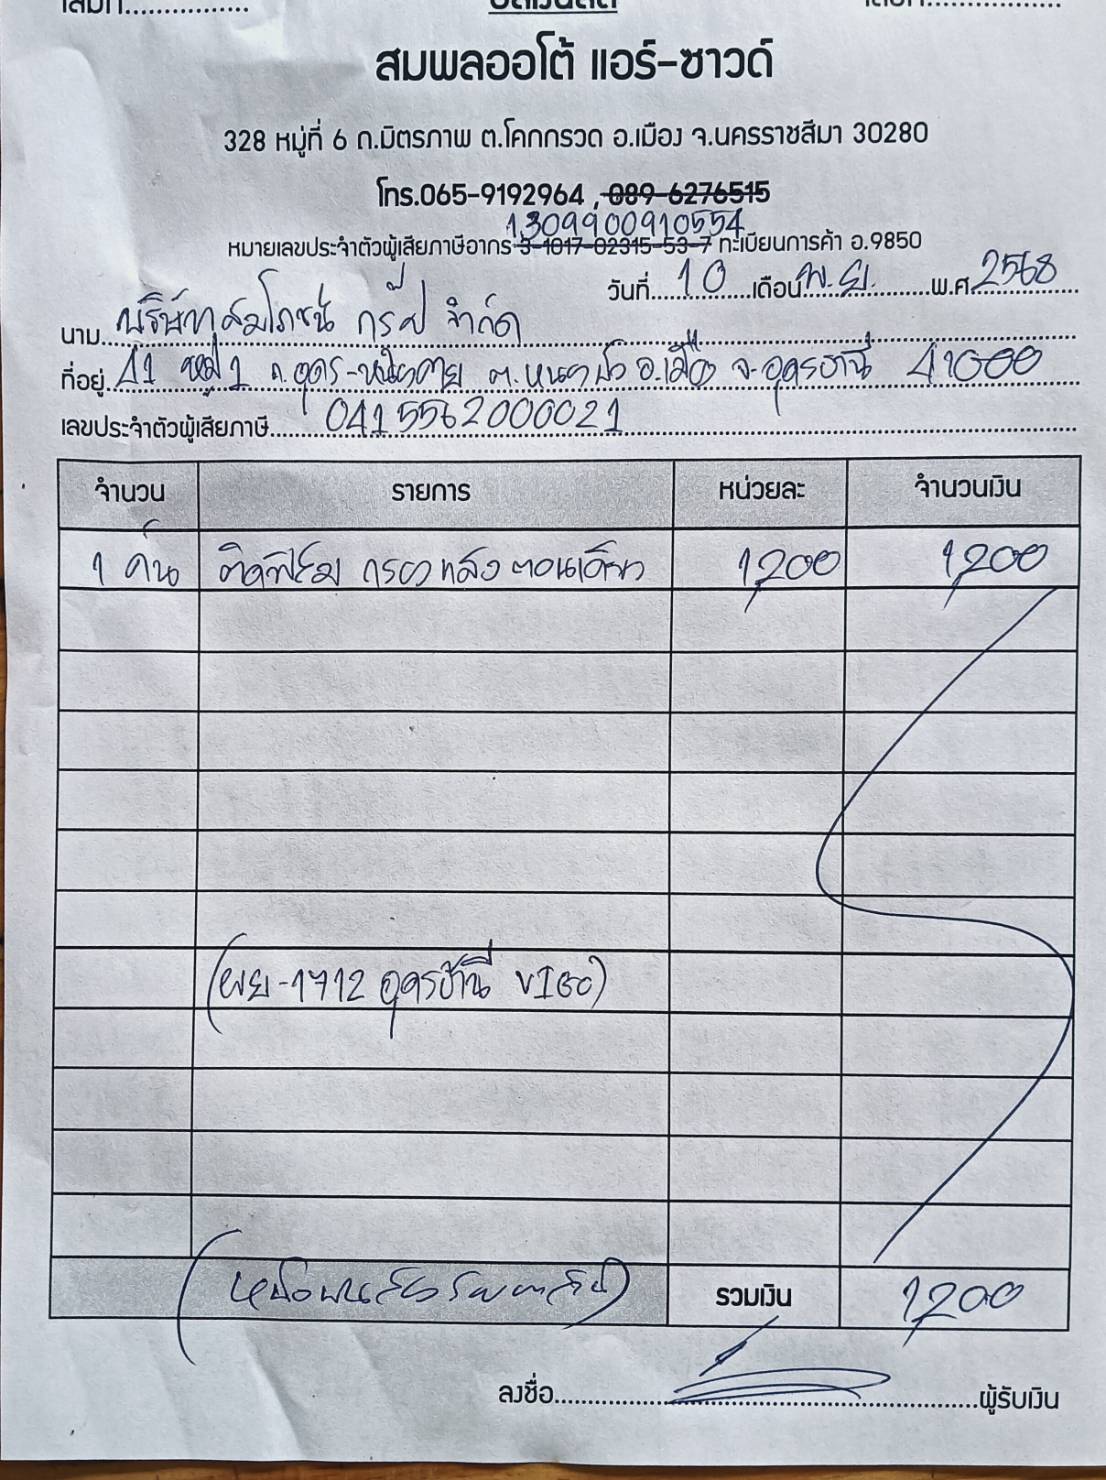 เล่มที่............... บิลเงินสด เลขที่...............
สมพลออโต้ แอร์-ซาวด์
328 หมู่ที่ 6 ถ.มิตรภาพ ต.โคกกรวด อ.เมือง จ.นครราชสีมา 30280
โทร.065-9192964 , 089-6276515
1309900910554
หมายเลขประจำตัวผู้เสียภาษีอากร 3-1017-02315-53-7 ทะเบียนการค้า อ.9850
วันที่ 10 เดือน พ.ย. พ.ศ. 2568
นาม บริษัท สมโภชน์ กรุ๊ป จำกัด
ที่อยู่ 41 หมู่ 1 ถ.อุดร-หนองคาย ต.หนองบัว อ.เมือง จ.อุดรธานี 41000
เลขประจำตัวผู้เสียภาษี 0415562000021
จำนวน รายการ หน่วยละ จำนวนเงิน
1 คัน ติดฟิล์ม กระจกหลัง ตอนเดียว 1,200 1,200
(ผย-1712 อุดรธานี VIGO)
(หนึ่งพันสองร้อยบาทถ้วน) รวมเงิน 1,200
ลงชื่อ ผู้รับเงิน